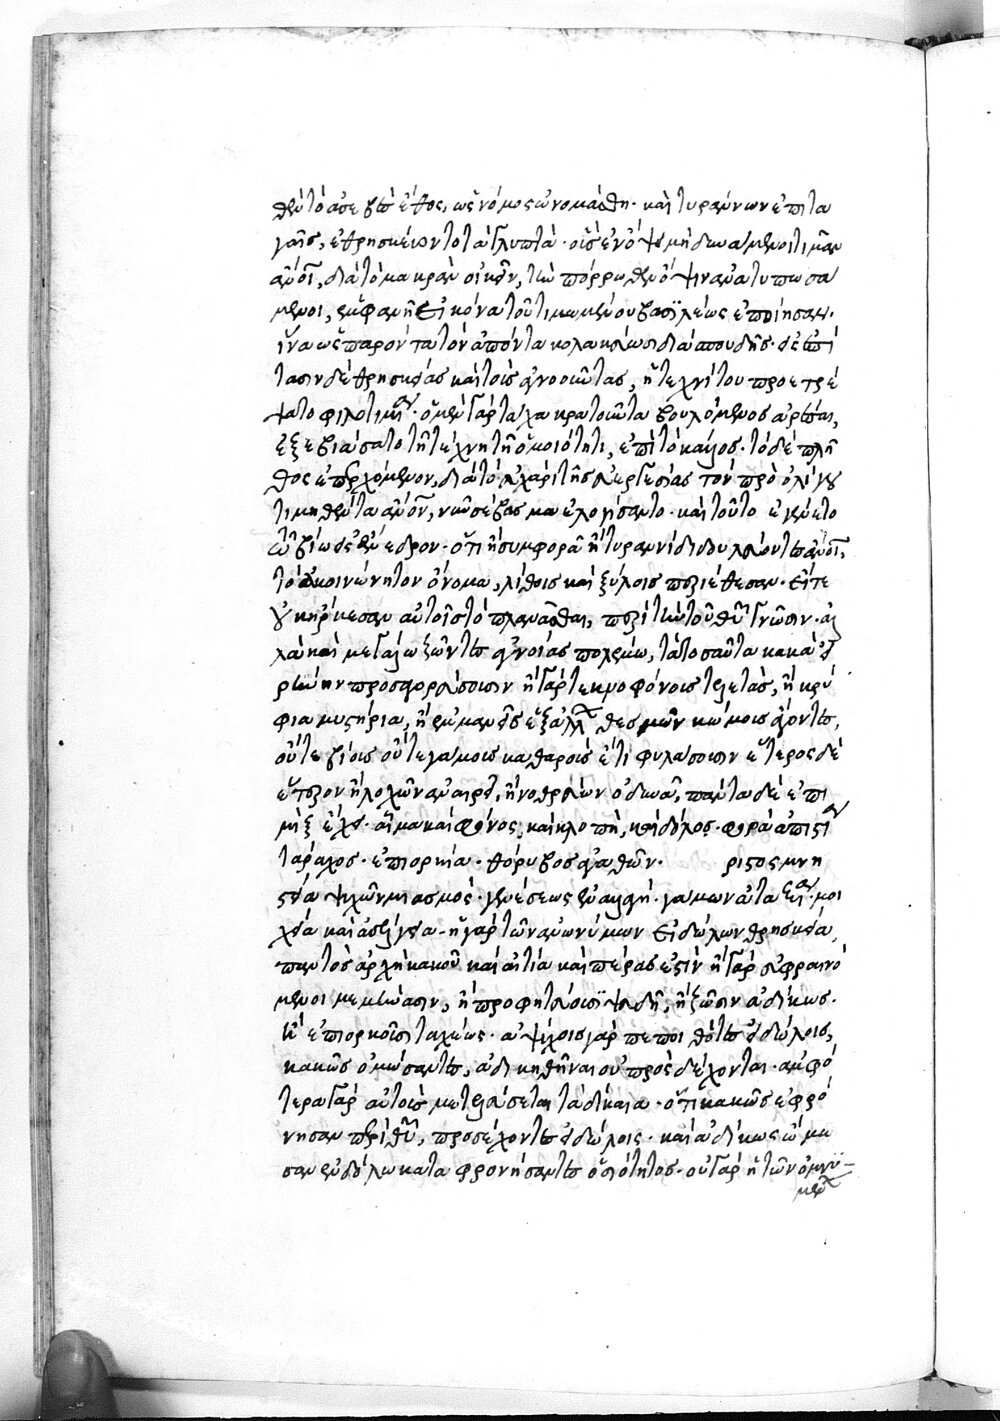 θὲν τὸ ἀσεβὲς ἔθος, ὡς νόμος ὠνομάσθη· καὶ τυράννων ἐπιτα
γαῖς, ἐθρησκεύοντο τὰ γλυπτά· οἷς ἐν ὄψει μὴ δυνάμενοι τιμᾶν
ἄνοι, διὰ τὸ μακρὰν οἰκεῖν, τὴν πόρρωθεν ὄψιν ἀνατυπωσα
μενοι, ἐμφανῆ εἰκόνα τοῦ τιμωμένου βασϊλέως ἐποίησαν·
ἵνα ὡς παρόντα τὸν ἀπόντα κολακεύωσι διὰ σπουδῆς· εἰς ἐπί
τασιν δὲ θρησκείας καὶ τοὺς ἀγνοοῦντας, ἡ τεχνίτου προετρέ
ψατο φιλοτιμίαν· ὁ μὲν γὰρ τάχα κρατοῦντα βουλόμενος ἀρέσαι,
ἐξεβιάσατο τῇ τέχνη τῇ ὁμοιότητι, ἐπὶ τὸ κάλλος· τὸ δὲ πλῆ
θος ἐπερχόμενον, διὰ τὸ εὔχαρι τῆς εὐεργεσίας τὸν πρὸ ὀλίγου
τιμηθέντα ἄνον, νῦν σέβασμα ἐλογίσαντο· καὶ τοῦτο ἐγένετο
τῷ βίῳ εἰς ἔνεδρον· ὅτι ἢ συμφορᾶ ἢ τυραννίδι δουλεύοντες ἄνοι,
τὸ ἀκοινώνητον ὄνομα, λίθοις καὶ ξύλοις περιέθεσαν· εἴτε
οὐκ ἤρκεσεν αὐτοῖς τὸ πλανᾶσθαι, περὶ τὴν τοῦ θυ γνῶσιν· ἀλ
λὰ καὶ μεγάλω ζῶντες ἀγνοίας πολέμω, τὰ τοσαῦτα κακὰ εἰ
ρήνην προσαγορεύουσιν ἢ γὰρ τεκνοφόνους τελετὰς, ἢ κρύ
φια μυστήρια, ἢ ἐμμανεῖς ἐξάλλ θεσμῶν κώμους ἄγοντες,
οὔτε βίους οὔτε γάμους καθαροὺς ἔτι φυλάσσουσιν ἕτερος δὲ
ἕτερον ἢ λοχῶν ἀναιρεῖ, ἢ νοθεύων ὀδυνᾶ, πάντα δὲ ἐπι
μὶξ ἔχει· αἷμα καὶ φόνος, καὶ κλοπὴ, καὶ δόλος· φθορὰ ἀπιστία
τάραχος· ἐπιορκία· θόρυβος ἀγαθῶν· ριτος μνη
στεία ψυχῶν μιασμός· γενέσεως ἐναλλαγή· γάμων ἀταξία· μοι
χεία καὶ ἀσέλγεια· ἡ γὰρ τῶν ἀνωνύμων εἰδώλων θρησκεία,
παντὸς ἀρχὴ κακοῦ καὶ αἰτία καὶ πέρας ἐστὶν ἢ γὰρ εὐφραινό
μενοι μεμήνασιν, ἢ προφητεύουσι ψευδῆ, ἢ ζῶσιν ἀδίκως·
ἢ ἐπιορκοῦσι ταχέως· ἀψύχοις γὰρ πεποιθότες εἰδώλοις,
κακῶς ὀμόσαντες, ἀδικηθῆναι οὐ προσδέχονται· ἀμφό
τερα γὰρ αὐτοὺς μετελεύσεται τὰ δίκαια· ὅτι κακῶς ἐφρό
νησαν περὶ θυ, προσέχοντες εἰδώλοις· καὶ ἀδίκως ὤμο
σαν ἐν δόλω καταφρονήσαντες ὁσιότητος· οὐ γὰρ ἡ τῶν ὀμνυ
μέν